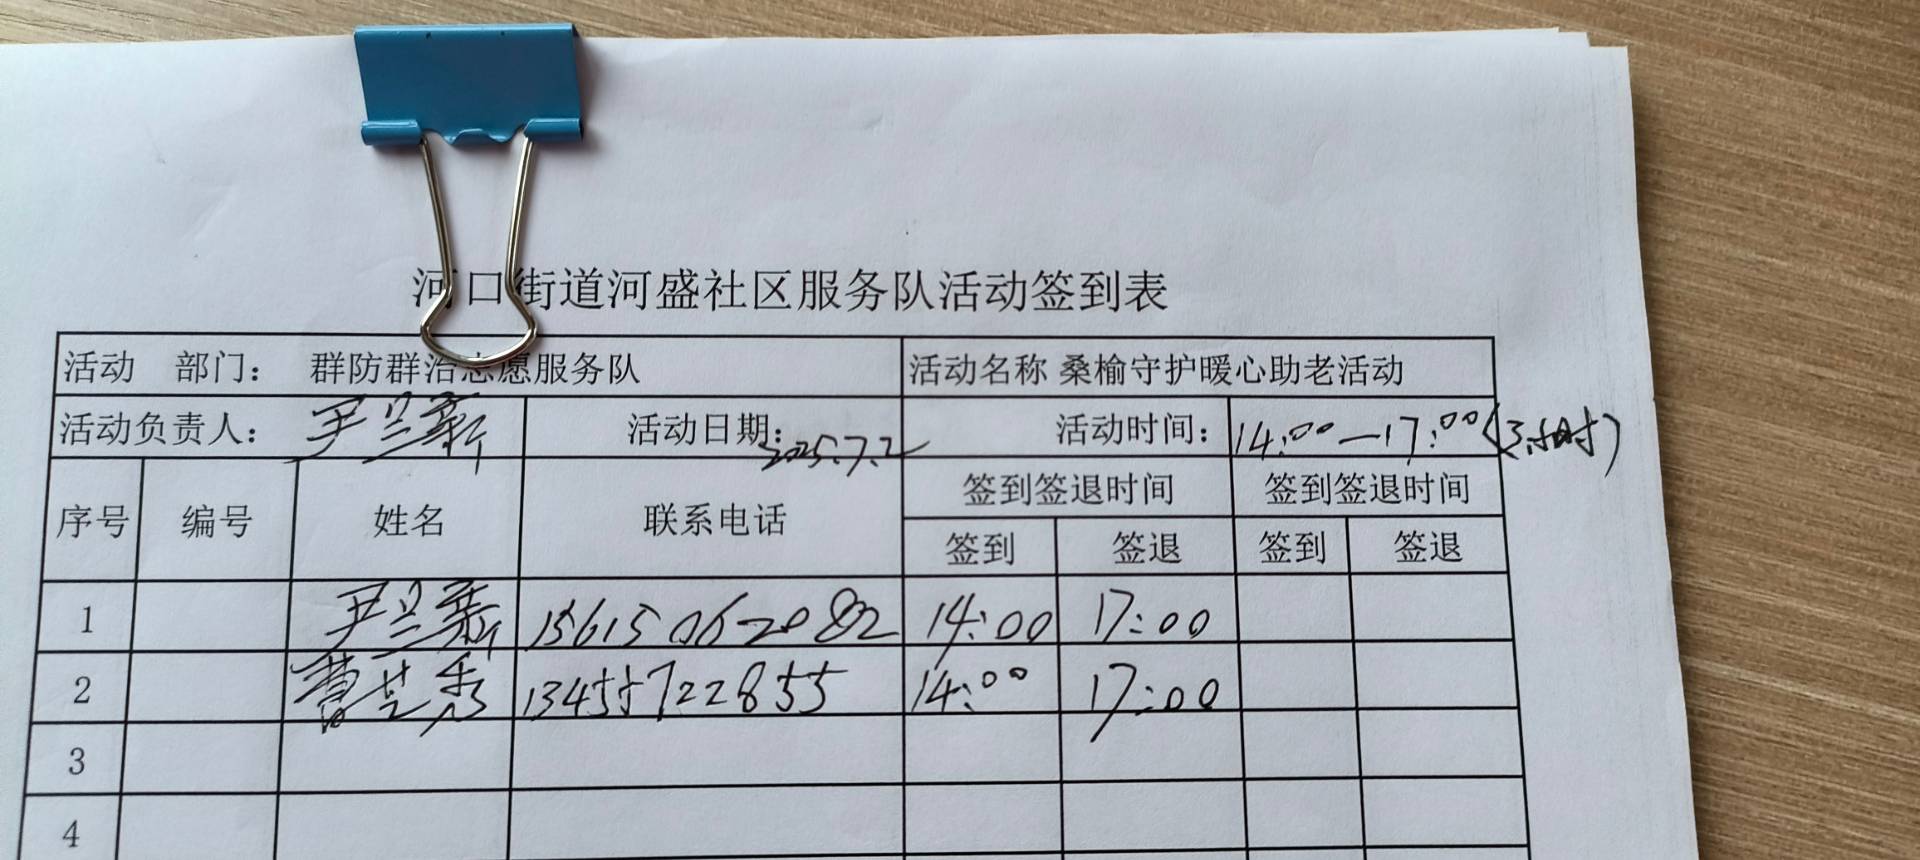 河口街道河盛社区服务队活动签到表
活动 部门： 群防群治志愿服务队 活动名称 桑榆守护暖心助老活动
活动负责人： 尹兰新 活动日期： 2025.7.2 活动时间： 14:00—17:00(3小时)
序号 编号 姓名 联系电话 签到签退时间 签到签退时间
签到 签退 签到 签退
1 尹兰新 15615062082 14:00 17:00
2 曹芝秀 13455722855 14:00 17:00
3
4